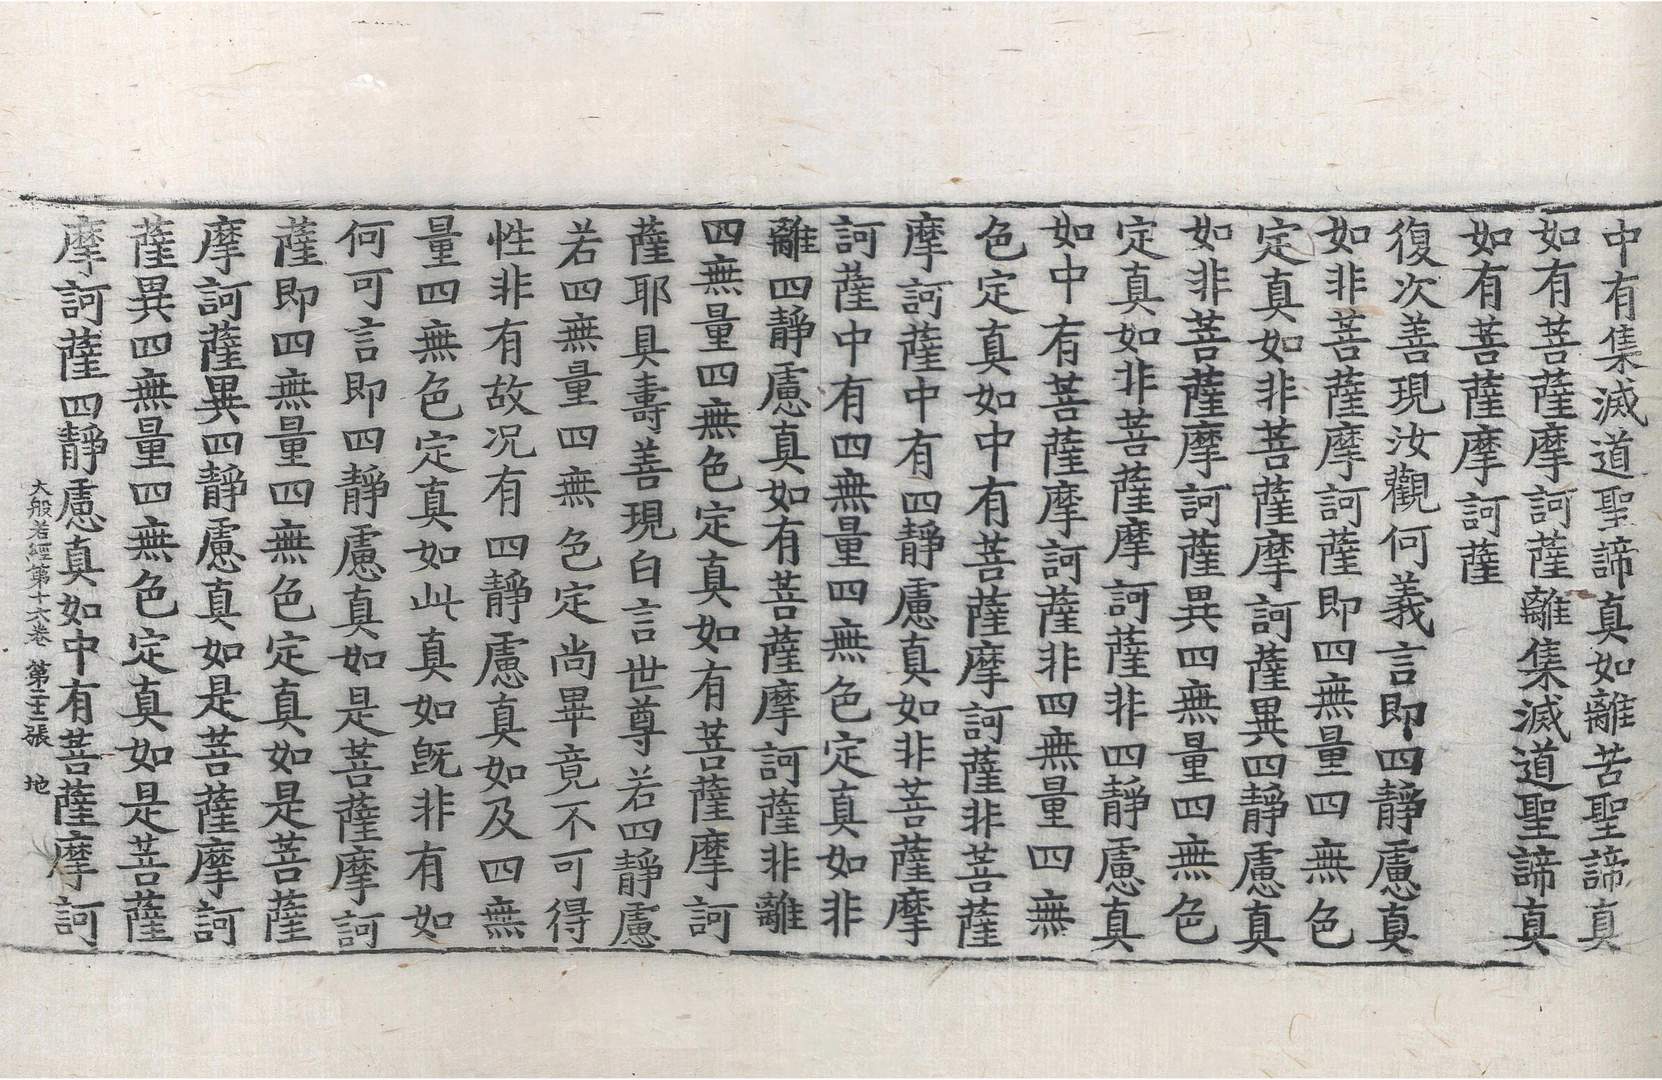 中有集滅道聖諦真如離苦聖諦真
如有菩薩摩訶薩離集滅道聖諦真
如有菩薩摩訶薩
復次善現汝觀何義言即四靜慮真
如非菩薩摩訶薩即四無量四無色
定真如非菩薩摩訶薩異四靜慮真
如非菩薩摩訶薩異四無量四無色
定真如非菩薩摩訶薩非四靜慮真
如中有菩薩摩訶薩非四無量四無
色定真如中有菩薩摩訶薩非菩薩
摩訶薩中有四靜慮真如非菩薩摩
訶薩中有四無量四無色定真如非
離四靜慮真如有菩薩摩訶薩非離
四無量四無色定真如有菩薩摩訶
薩耶具壽善現白言世尊若四靜慮
若四無量四無色定尚畢竟不可得
性非有故况有四靜慮真如及四無
量四無色定真如此真如旣非有如
何可言即四靜慮真如是菩薩摩訶
薩即四無量四無色定真如是菩薩
摩訶薩異四靜慮真如是菩薩摩訶
薩異四無量四無色定真如是菩薩
摩訶薩四靜慮真如中有菩薩摩訶
大般若經第十六卷 第二十二張 地